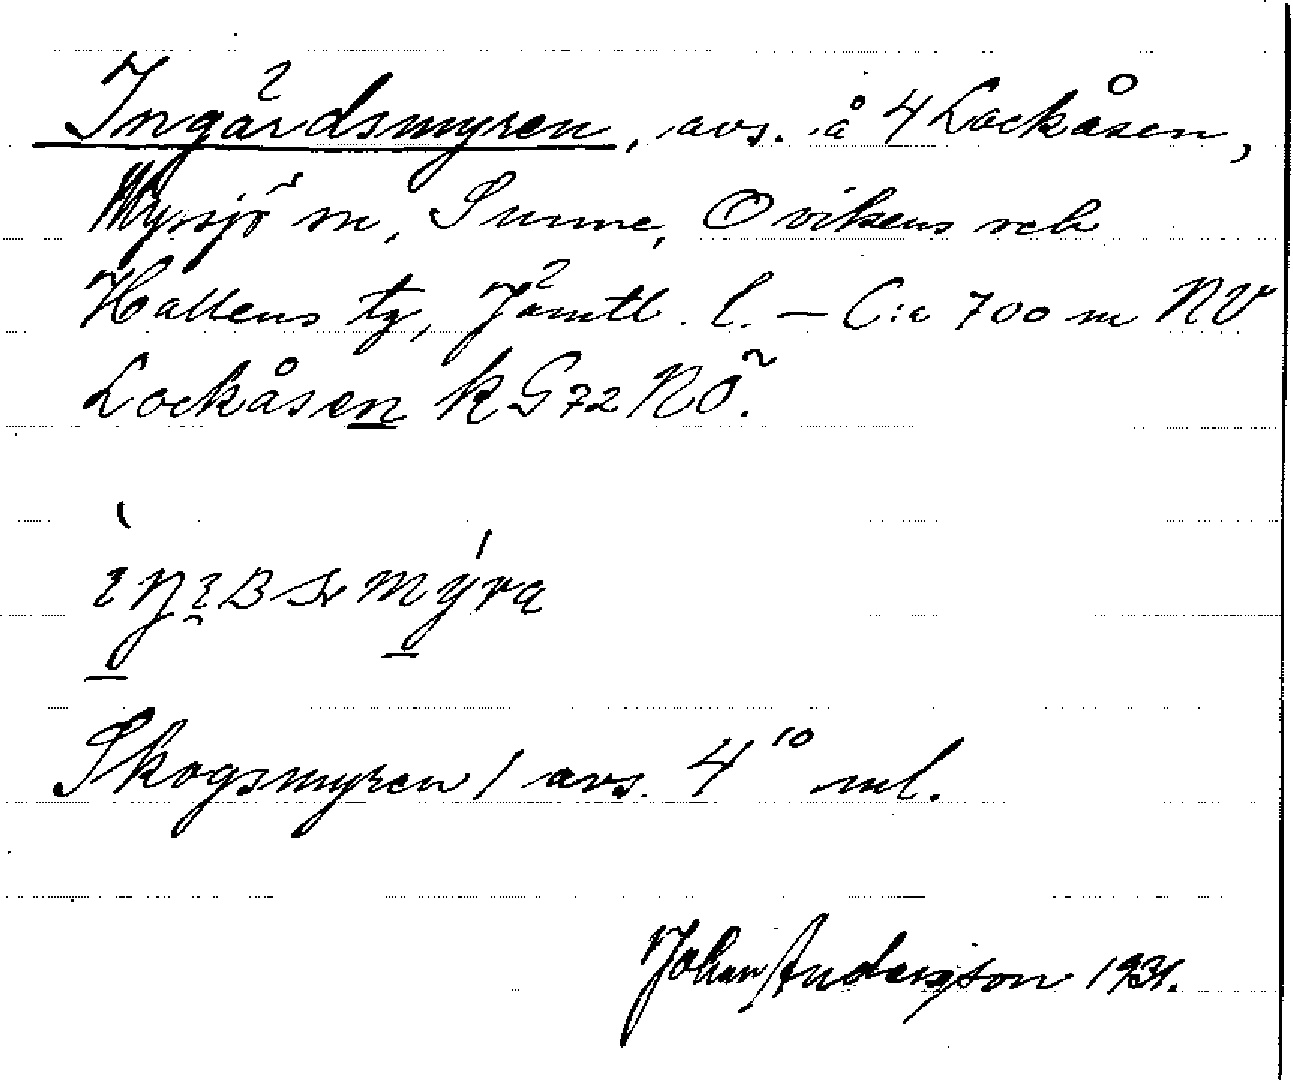 Ingärdsmyren, avs. å 4 Lockåsen,
Myssjö m, Sunne, Ovikens och
Hallens tg, Jämtl. l. – C:a 700 m NV
Lockåsen k G 72 NÖ.
Skogsmyren / avs. 4¹⁰ ml.
Johan Andersson 1931.